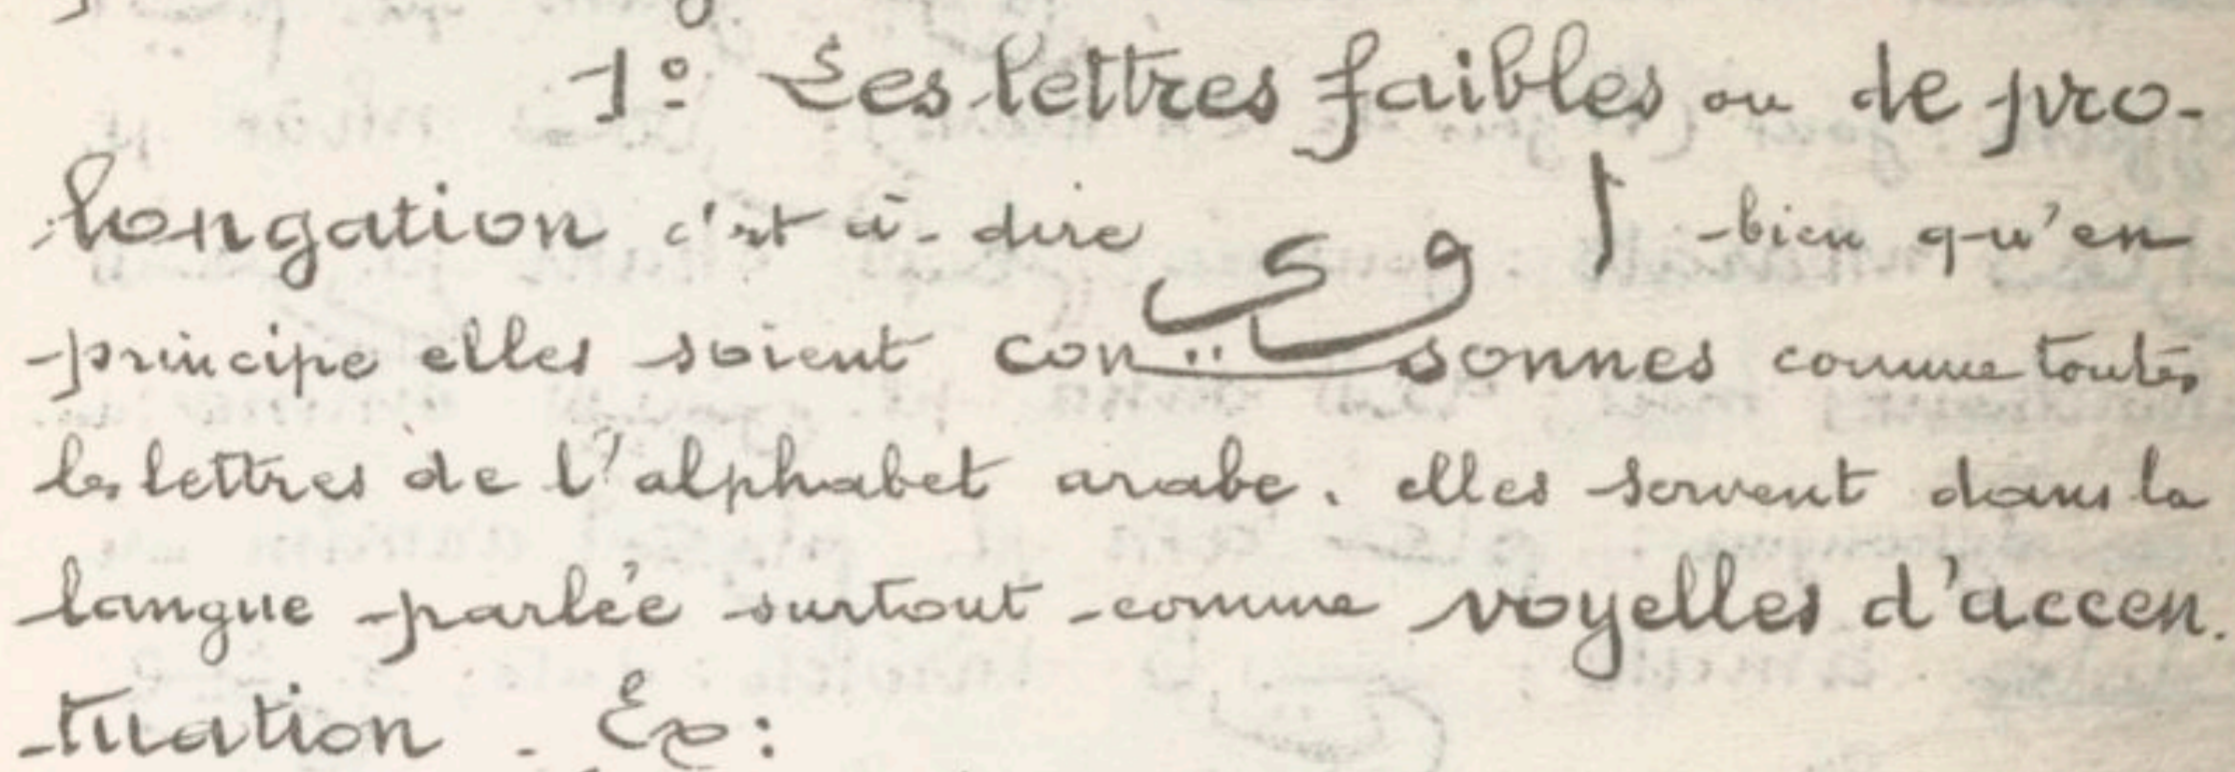 1º Les lettres faibles ou de pro-
longation c'est à-dire ا و ي bien qu'en
principe elles soient consonnes comme toutes
les lettres de l'alphabet arabe. elles servent dans la
langue parlée surtout comme voyelles d'accen.
tuation. Ex: